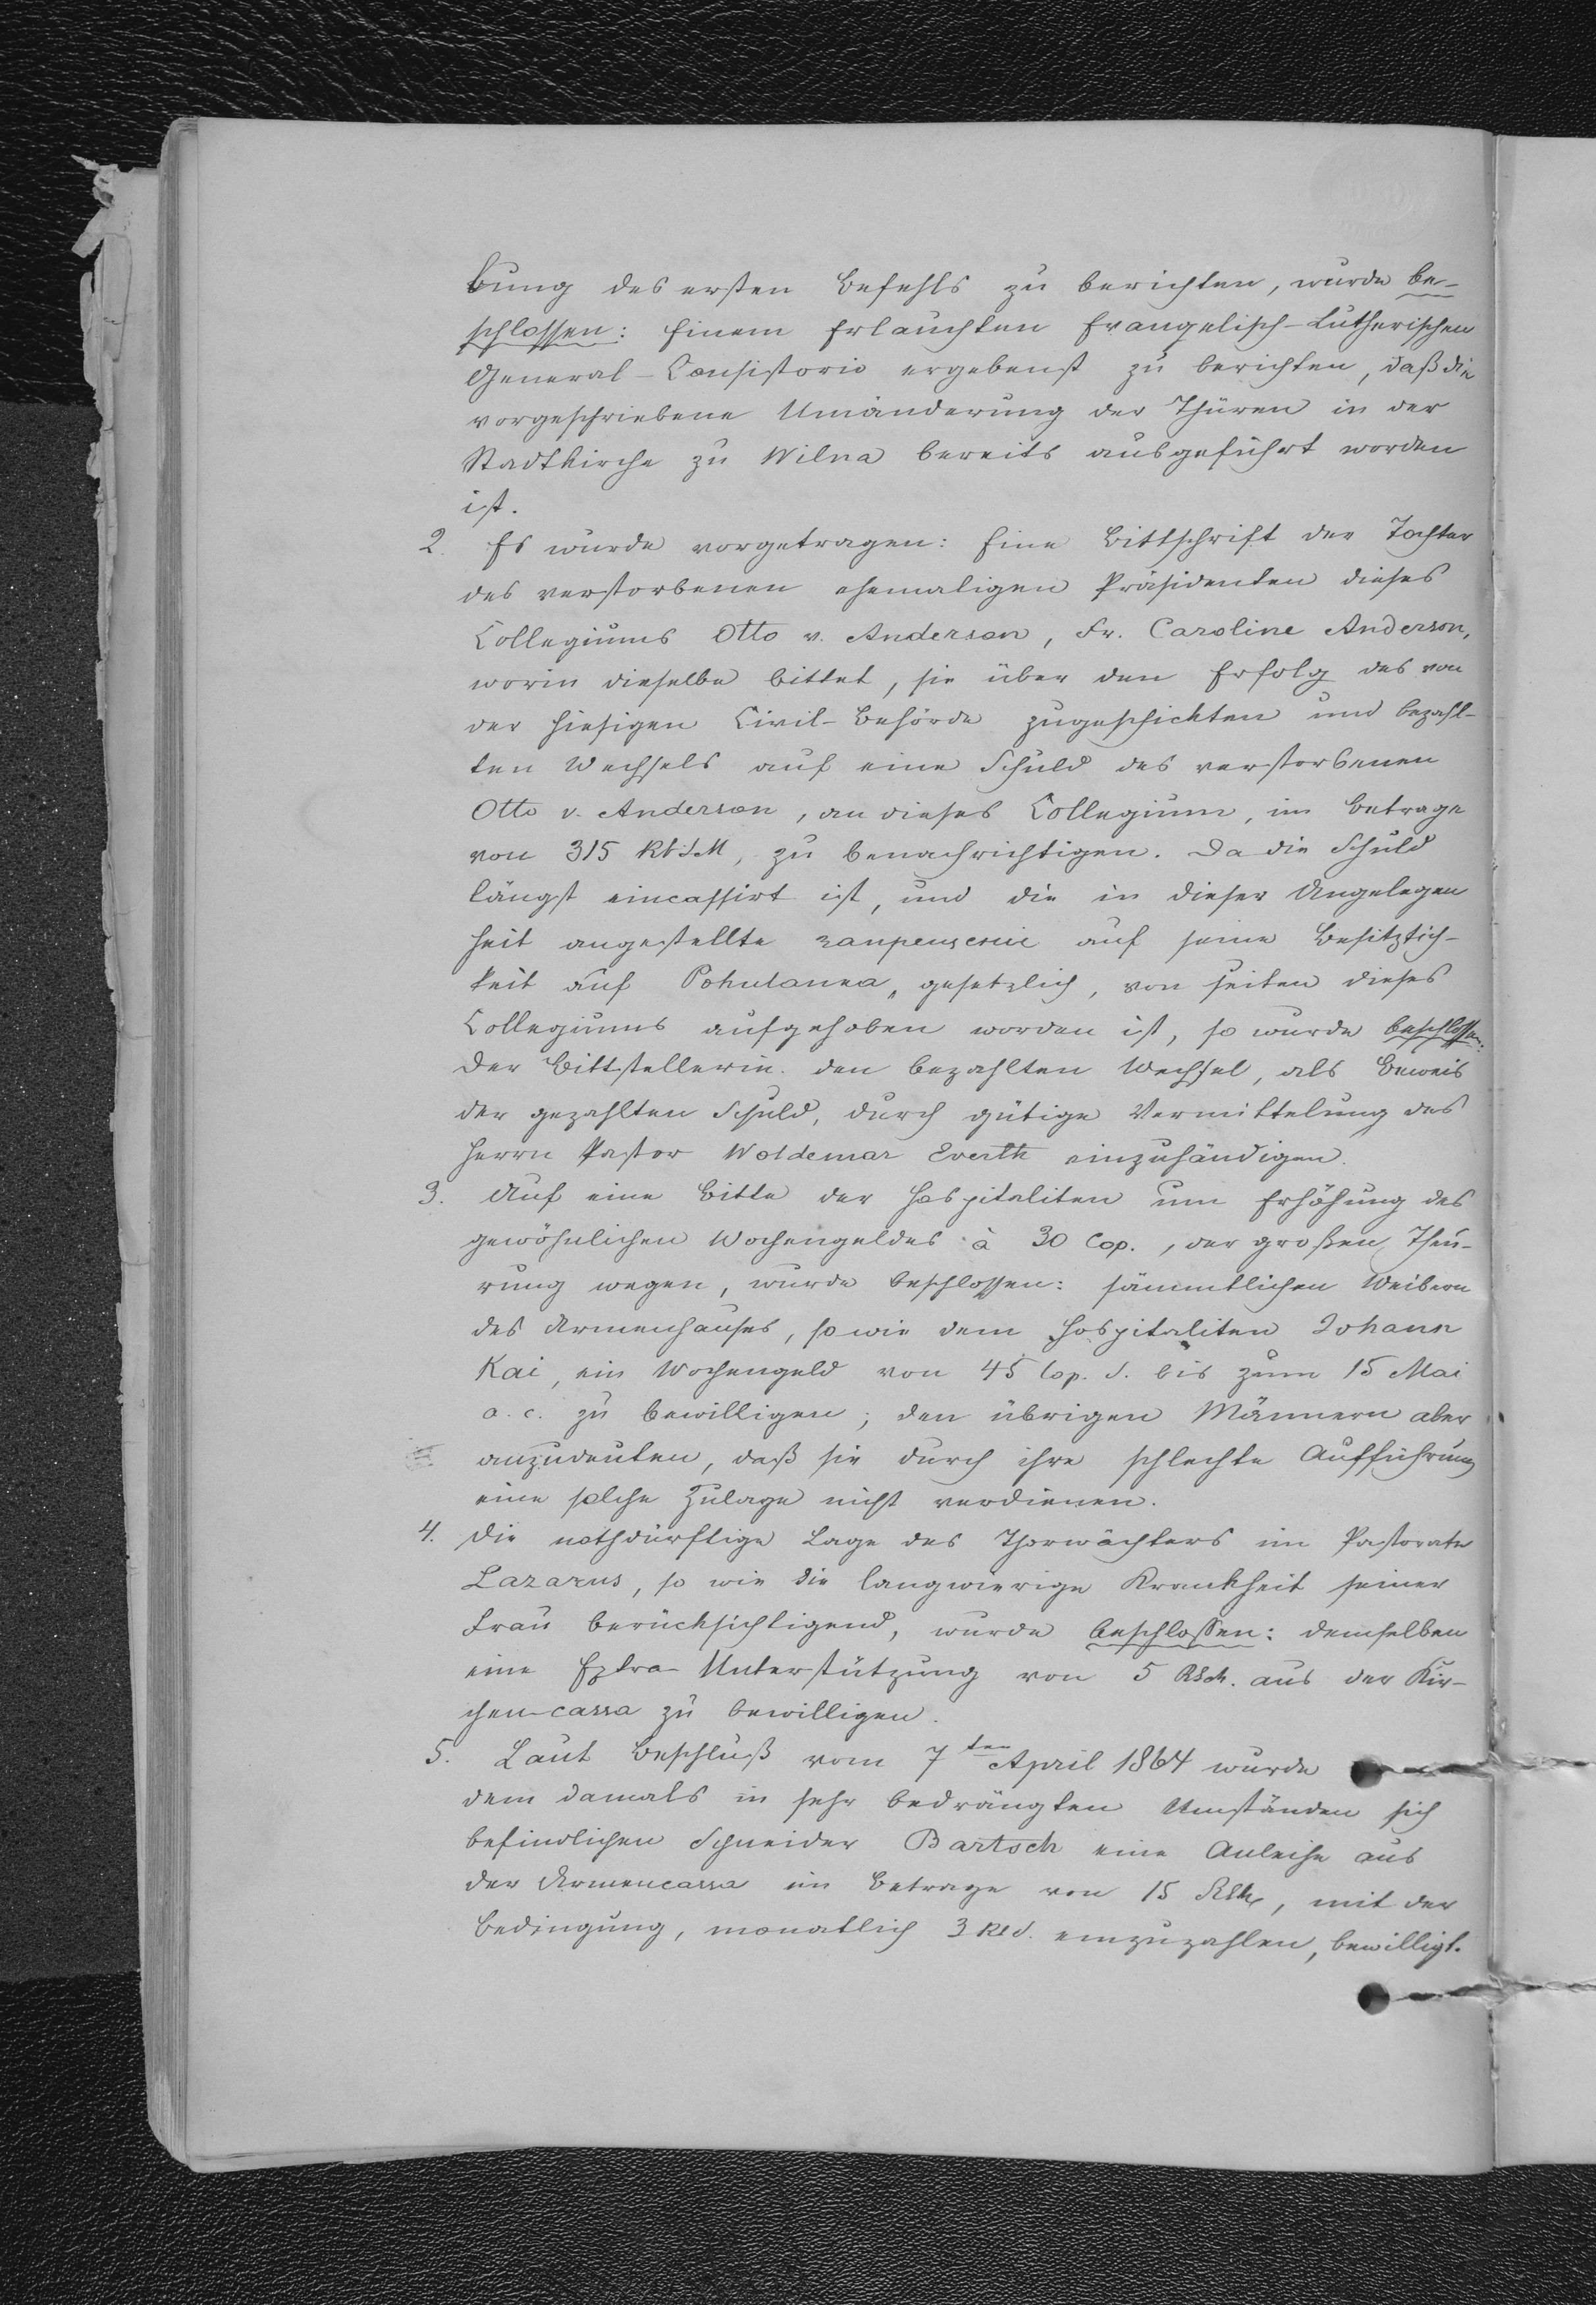 bung des ersten Befehls zu berichten, wurde be-
schlossen: Einem Erlauchten Evangelisch-Lutherischen
General-Consistorio ergebenst zu berichten, daß die
vorgeschriebene Umänderung der Thüren in der
Stadtkirche zu Wilna bereits ausgeführt worden
ist.
2. Es wurde vorgetragen: Eine Bittschrift der Tochter
des verstorbenen ehemaligen Präsidenten dieses
Collegiums Otto v. Anderson, Fr. Caroline Anderson,
worin dieselbe bittet, sie über den Erfolg des von
der hiesigen Civil-Behörde zugeschickten und bezahl-
ten Wechsels auf eine Schuld des verstorbenen
Otto v. Anderson, an dieses Collegium, im Betrage
von 315 Rbl SM, zu benachrichtigen. Da die Schuld
längst eincassirt ist, und die in dieser Angelegen
heit angestellte запрещеніе auf seine Besitzlich-
keit auf Pohulanka, gesetzlich, von seiten dieses
Collegiums aufgehoben worden ist, so wurde beschlossen:
Der Bittstellerin den bezahlten Wechsel, als Beweis
der gezahlten Schuld, durch gütige Vermittelung des
Herrn Pastor Woldemar Everth einzuhändigen.
3. Auf eine Bitte der Hospitaliten um Erhöhung des
gewöhnlichen Wochengeldes à 30 Cop., der großen Theu-
rung wegen, wurde beschlossen: sämmtlichen Weibern
des Armenhauses, sowie dem Hospitaliten Johann
Kai, ein Wochengeld von 45 Cop. S. bis zum 15 Mai
a. c. zu bewilligen; den übrigen Männern aber
anzudeuten, daß sie durch ihre schlechte Aufführung
eine solche Zulage nicht verdienen.
4. Die nothdürftige Lage des Thorwächters im Pastorate
Lazarus, so wie die langwierige Krankheit seiner
Frau berücksichtigend, wurde beschlossen: demselben
eine Extra-Unterstützung von 5 RSM. aus der Kir-
chen-cassa zu bewilligen.
5. Laut Beschluß vom 7ten April 1864 wurde
dem damals in sehr bedrängten Umständen sich
befindlichen Schneider Bartsch eine Anleihe aus
der Armencassa im Betrage von 15 RSM, mit der
Bedingung, monatlich 3 Rbl S. einzuzahlen, bewilligt.